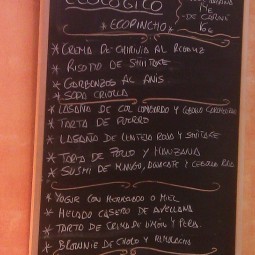 ECOLOGICO
* ECOPINCHO *
DE CARNE
* CREMA DE CHIRIVIA AL
* RISOTTO DE SHIITAKE
* GARBANZOS AL ANIS
* SOPA CRIOLLA
* LASAÑA DE COL LOMBARDA Y CEBOLLA
* TARTA DE PUERRO
* LASAÑA DE LENTEJA ROJA Y SHIITAKE
* TARTA DE POLLO Y MANZANA
* SUSHI DE MANGO, AGUACATE Y CEBOLLA ROJA
* YOGUR CON MERMELADA O MIEL
* HELADO CASERO DE AVELLANA
* TARTA DE CREMA DE LIMÓN Y PERA.
* BROWNIE DE CHOCO Y REMOLACHA